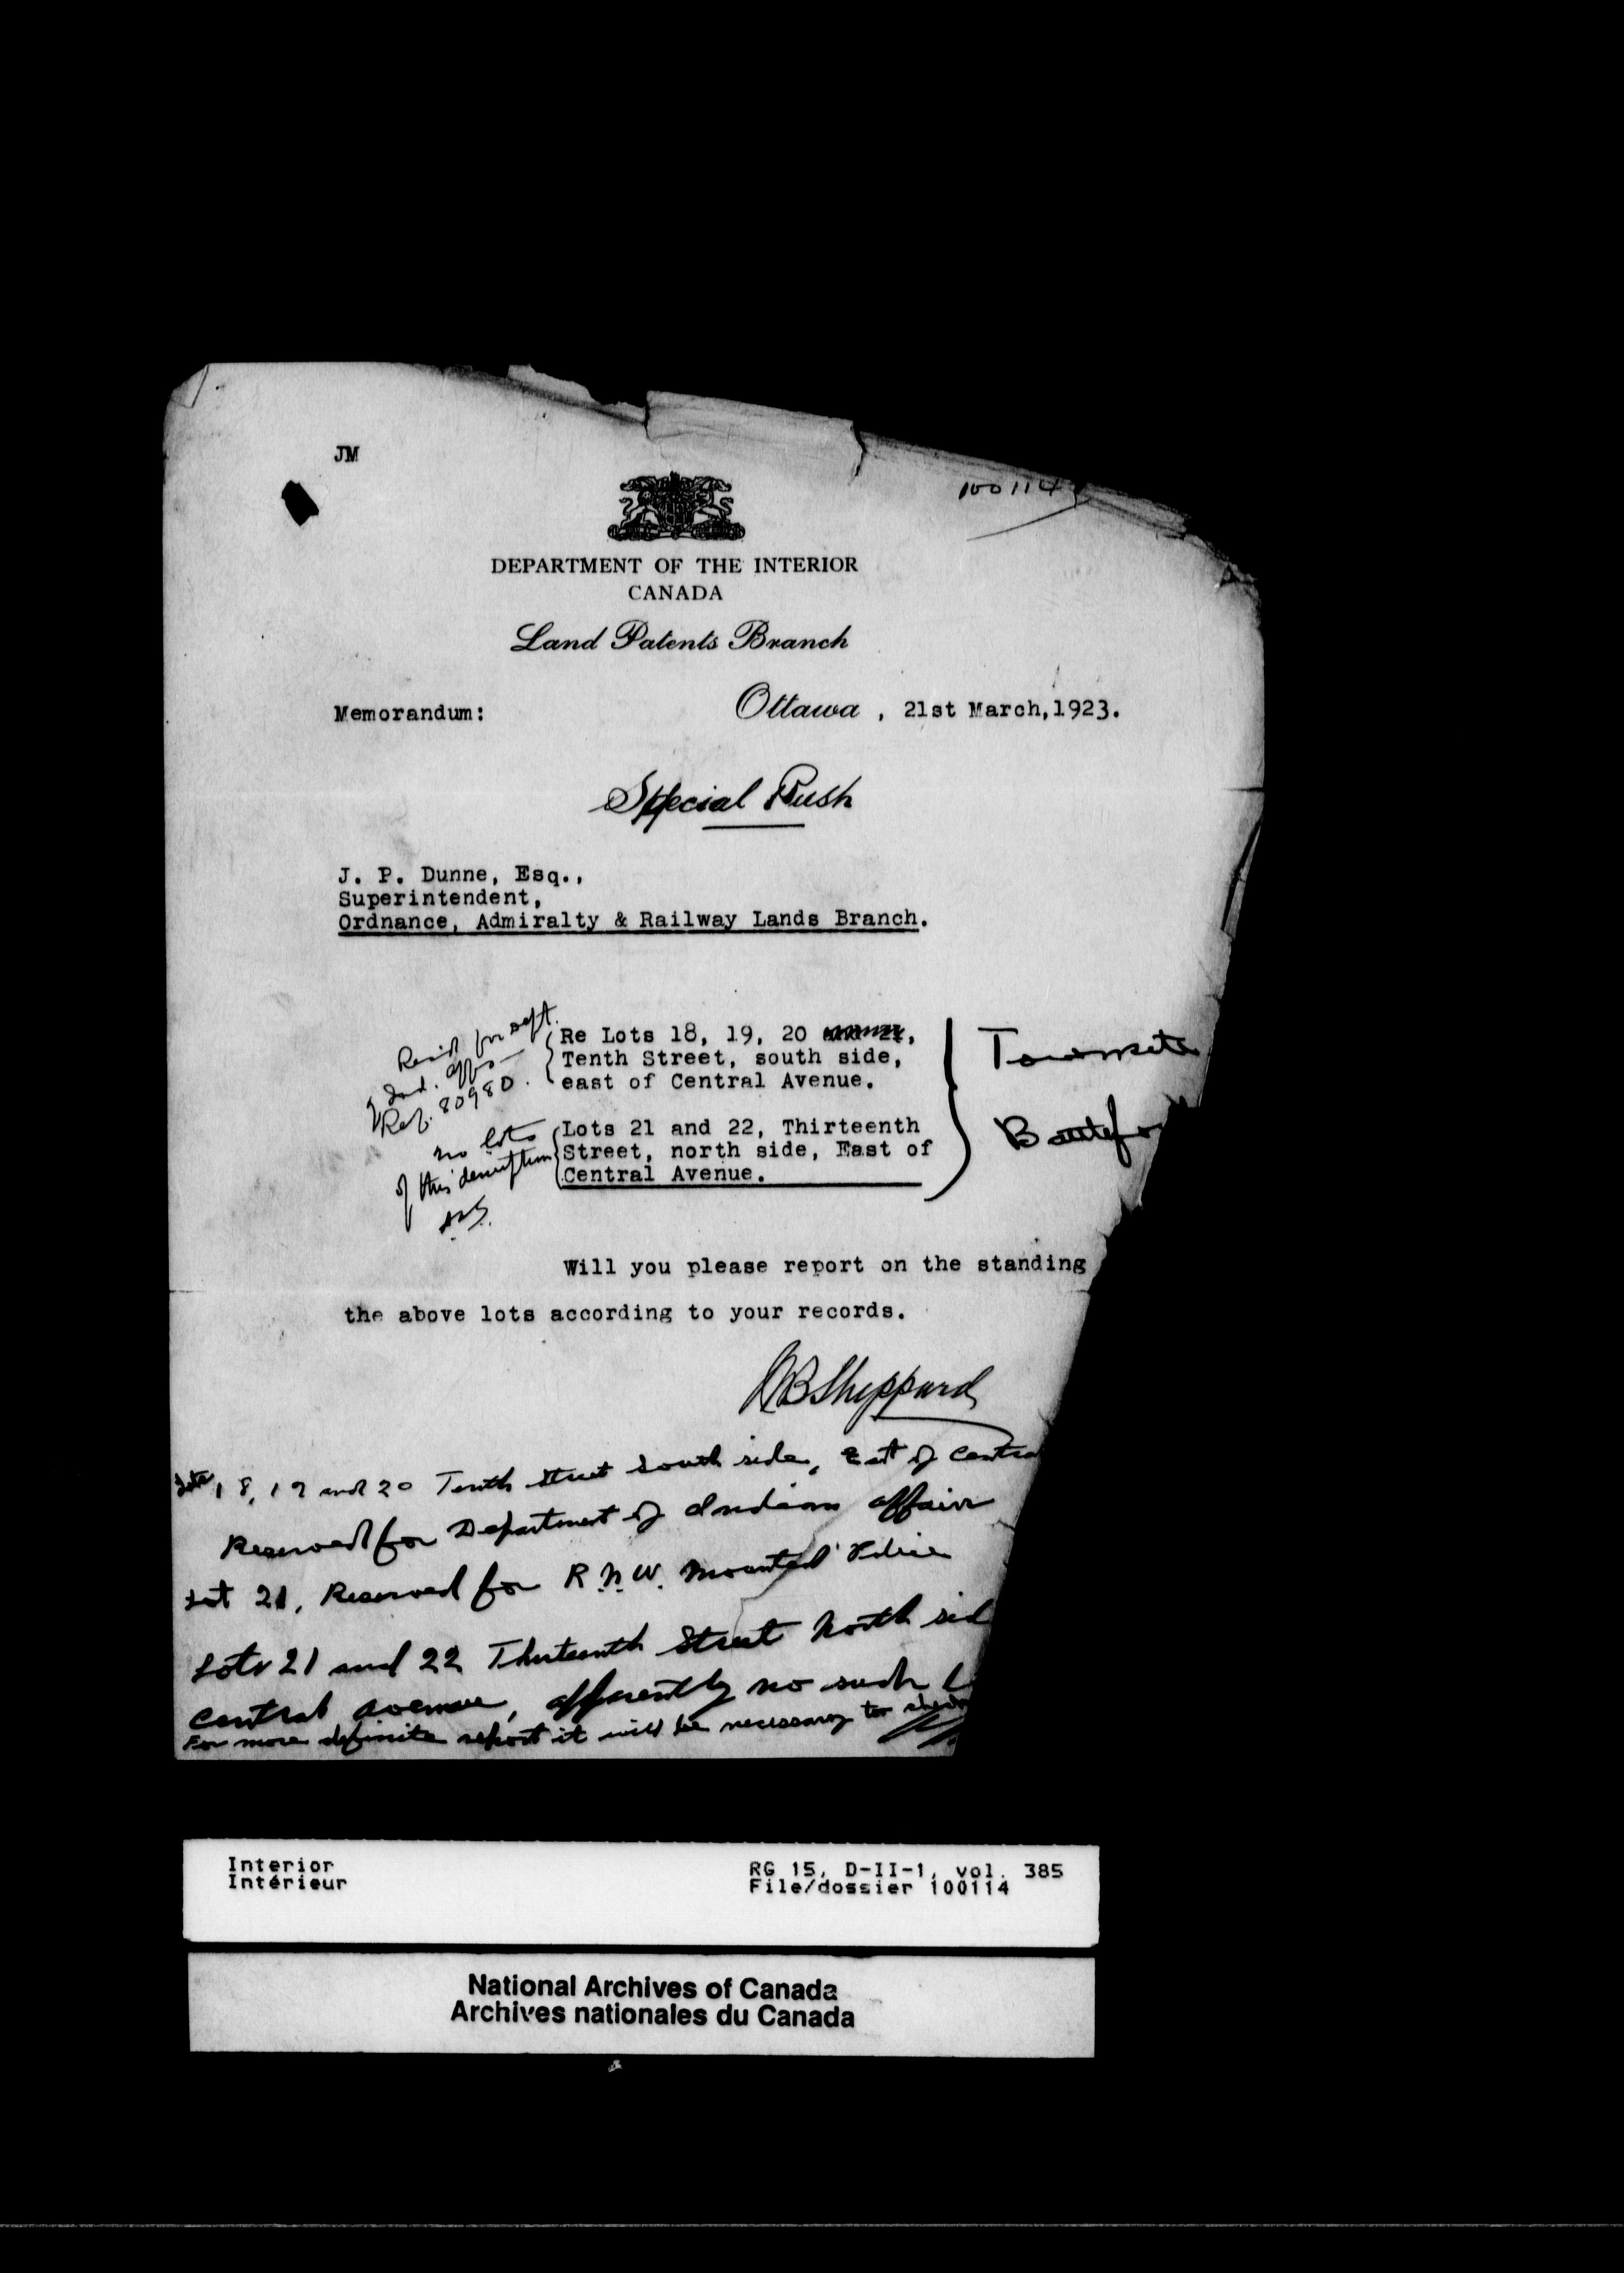 JM
100114
DEPARTMENT OF THE INTERIOR
CANADA
Land Patents Branch
Memorandum: Ottawa , 21st March, 1923.
Special Rush
J. P. Dunne, Esq.,
Superintendent,
Ordnance, Admiralty & Railway Lands Branch.
Res'd for Dept.
of Ind. Affrs —
Ref. 80980.
Re Lots 18, 19, 20
Tenth Street, south side,
east of Central Avenue.
no lots
of this description
Lots 21 and 22, Thirteenth
Street, north side, East of
Central Avenue.
Townsite
Battlefo
Will you please report on the standing
the above lots according to your records.
Sheppard
Lots 18, 19 and 20 Tenth Street South side, East of Centra
Reserved for Department of Indian Affairs
Lot 21, Reserved for R.N.W. Mounted Police
Lots 21 and 22 Thirteenth Street North sid
Central Avenue, apparently no such l
For more definite report it will be necessary to
Interior
Intérieur
RG 15, D-II-1, vol. 385
File/dossier 100114
National Archives of Canada
Archives nationales du Canada